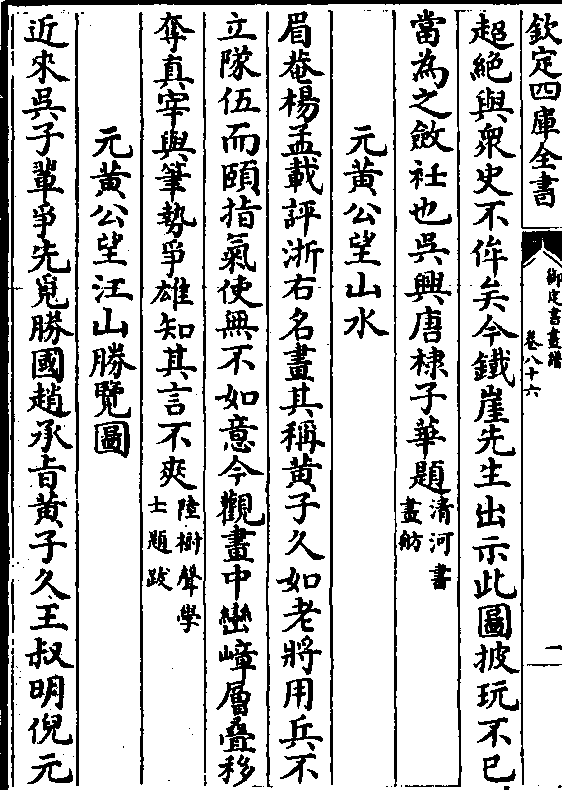 欽定四庫全書
御定書畫譜
卷八十六
超絶與衆史不侔矣今鐵崖先生出示此圖披玩不已
當為之斂衽也吳興唐棣子華題清河書畫舫
元黃公望山水
眉菴楊孟載評浙右名畫其稱黃子久如老將用兵不
立隊伍而頤指氣使無不如意今觀畫中巒嶂層疊移
奪真宰與筆勢爭雄知其言不爽陸樹聲學士題跋
元黃公望江山勝覽圖
近來吳子輩爭先覓勝國趙承旨黃子久王叔明倪元